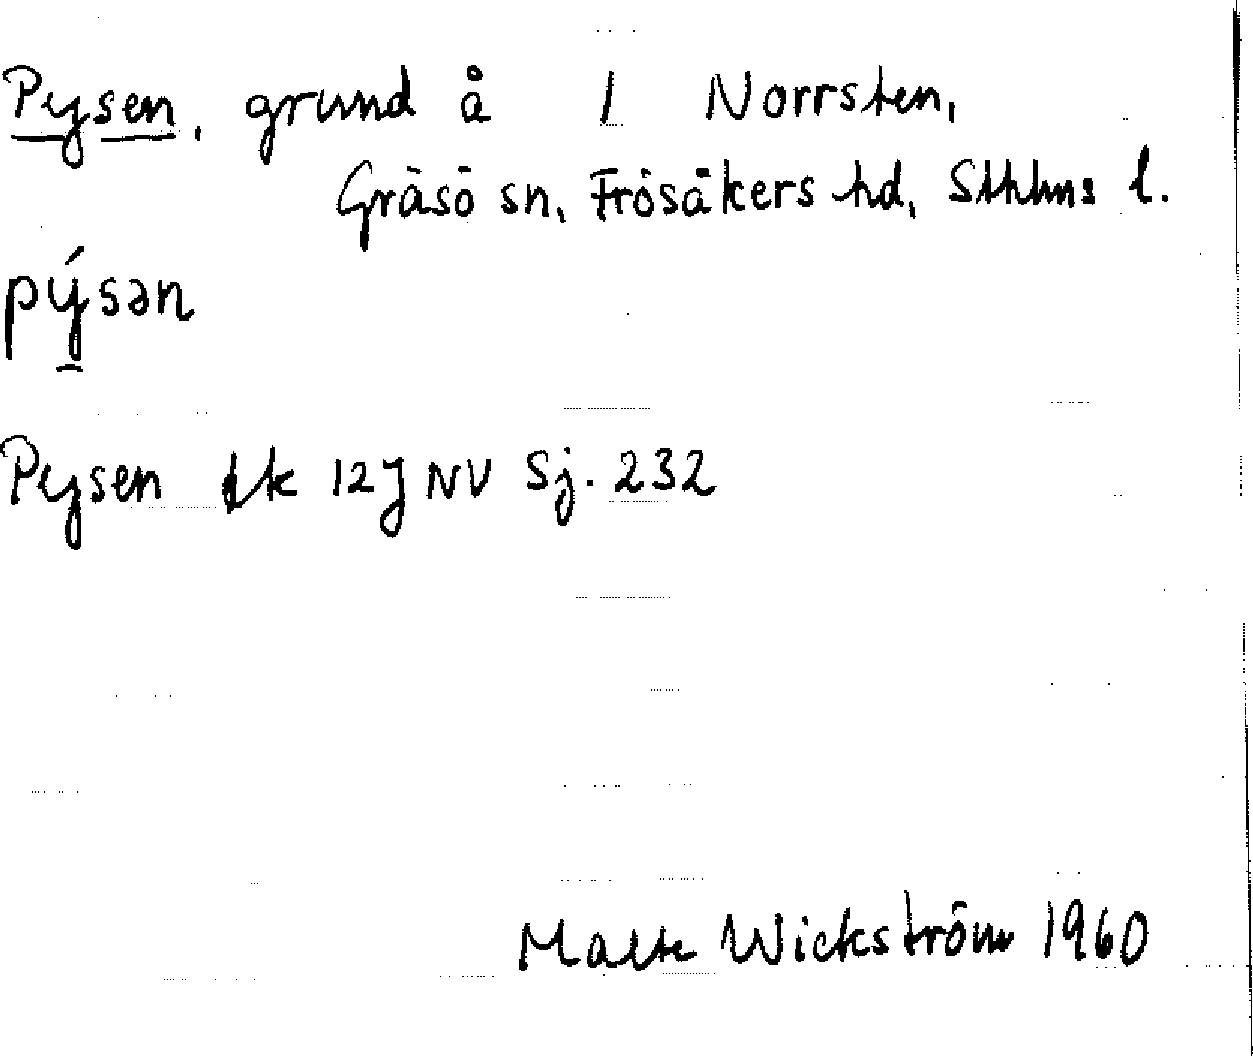 Pysen, grund å 1 Norrsten,
Gräsö sn, Frösåkers hd, Sthlms l.
pýsən
Pysen Ek 12J NV Sj. 232
Malte Wickström 1960